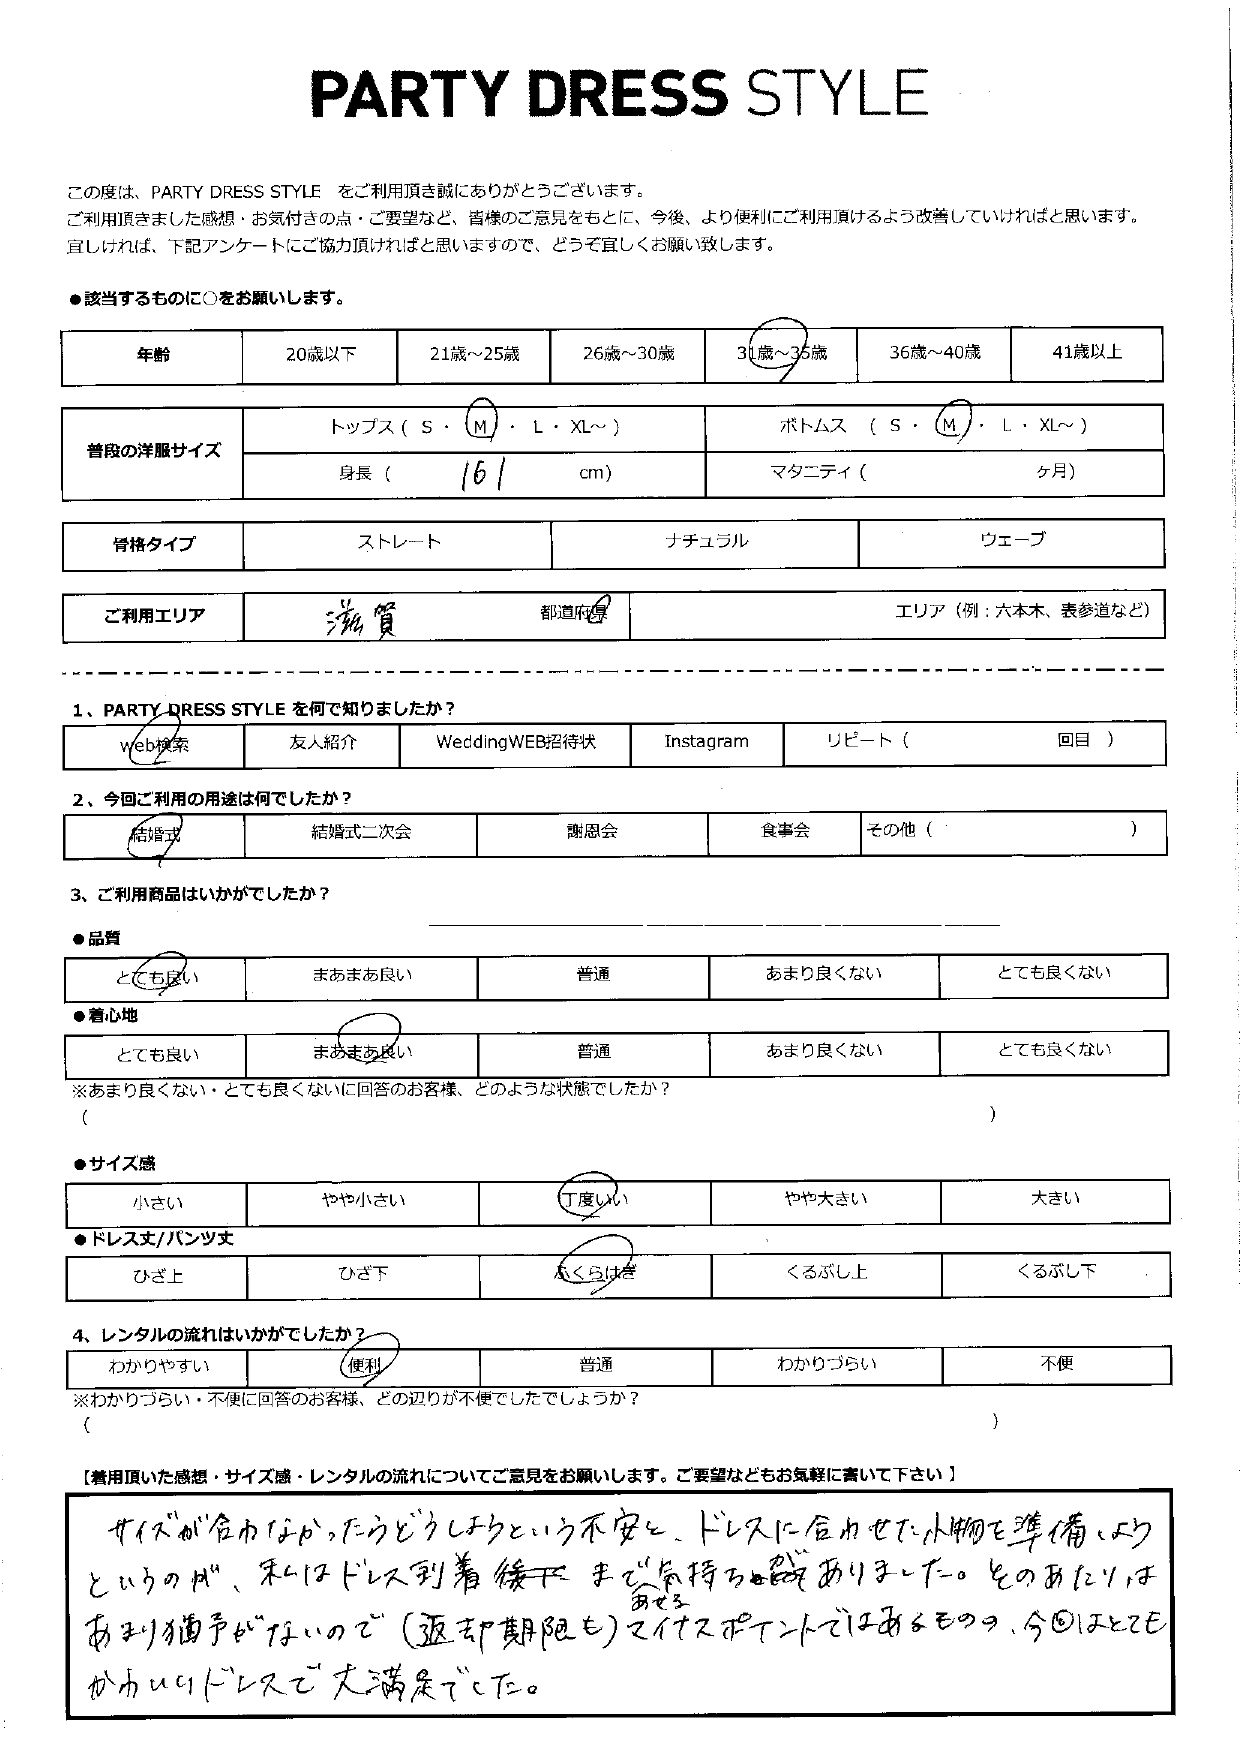 PARTY DRESS STYLE
この度は、PARTY DRESS STYLE をご利用頂き誠にありがとうございます。
ご利用頂きました感想・お気付きの点・ご要望など、皆様のご意見をもとに、今後、より便利にご利用頂けるよう改善していければと思います。
宜しければ、下記アンケートにご協力頂ければと思いますので、どうぞ宜しくお願い致します。
●該当するものに○をお願いします。
年齢 20歳以下 21歳～25歳 26歳～30歳 31歳～35歳 36歳～40歳 41歳以上
普段の洋服サイズ
トップス ( S ・ M ・ L ・ XL～ ) ボトムス ( S ・ M ・ L ・ XL～ )
身長 ( 161 cm) マタニティ ( ヶ月)
骨格タイプ ストレート ナチュラル ウェーブ
ご利用エリア 滋賀 都道府県 エリア（例：六本木、表参道など）
1、PARTY DRESS STYLE を何で知りましたか？
web検索 友人紹介 WeddingWEB招待状 Instagram リピート ( 回目 )
2、今回ご利用の用途は何でしたか？
結婚式 結婚式二次会 謝恩会 食事会 その他 ( )
3、ご利用商品はいかがでしたか？
●品質
とても良い まあまあ良い 普通 あまり良くない とても良くない
●着心地
とても良い まあまあ良い 普通 あまり良くない とても良くない
※あまり良くない・とても良くないに回答のお客様、どのような状態でしたか？
( )
●サイズ感
小さい やや小さい 丁度いい やや大きい 大きい
●ドレス丈/パンツ丈
ひざ上 ひざ下 ふくらはぎ くるぶし上 くるぶし下
4、レンタルの流れはいかがでしたか？
わかりやすい 便利 普通 わかりづらい 不便
※わかりづらい・不便に回答のお客様、どの辺りが不便でしたでしょうか？
( )
【着用頂いた感想・サイズ感・レンタルの流れについてご意見をお願いします。ご要望などもお気軽に書いて下さい 】
サイズが合わなかったらどうしようという不安と、ドレスに合わせた小物を準備しよう
というのが、私はドレス到着後 まで あせる気持ちが ありました。そのあたりは
あまり猶予がないので（返却期限も）マイナスポイントではあるものの、今回はとても
かわいいドレスで大満足でした。